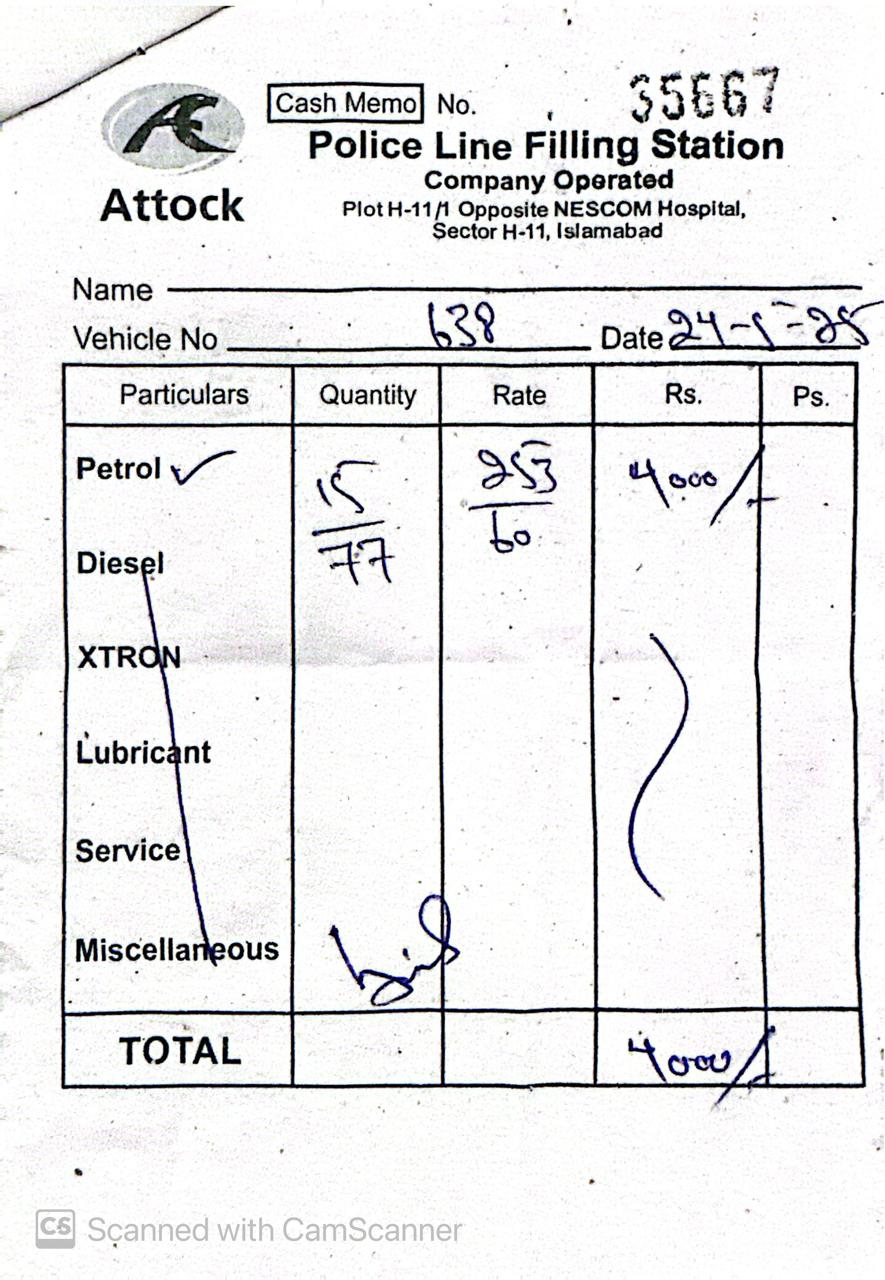 Cash Memo No. 35667
Police Line Filling Station
Company Operated
Plot H-11/1 Opposite NESCOM Hospital,
Sector H-11, Islamabad
Attock
Name
Vehicle No 638 Date 24-5-25
Particulars Quantity Rate Rs. Ps.
Petrol ✓ 15/77 253/60 4000/-
Diesel
XTRON
Lubricant
Service
Miscellaneous
TOTAL 4000/-
CS Scanned with CamScanner